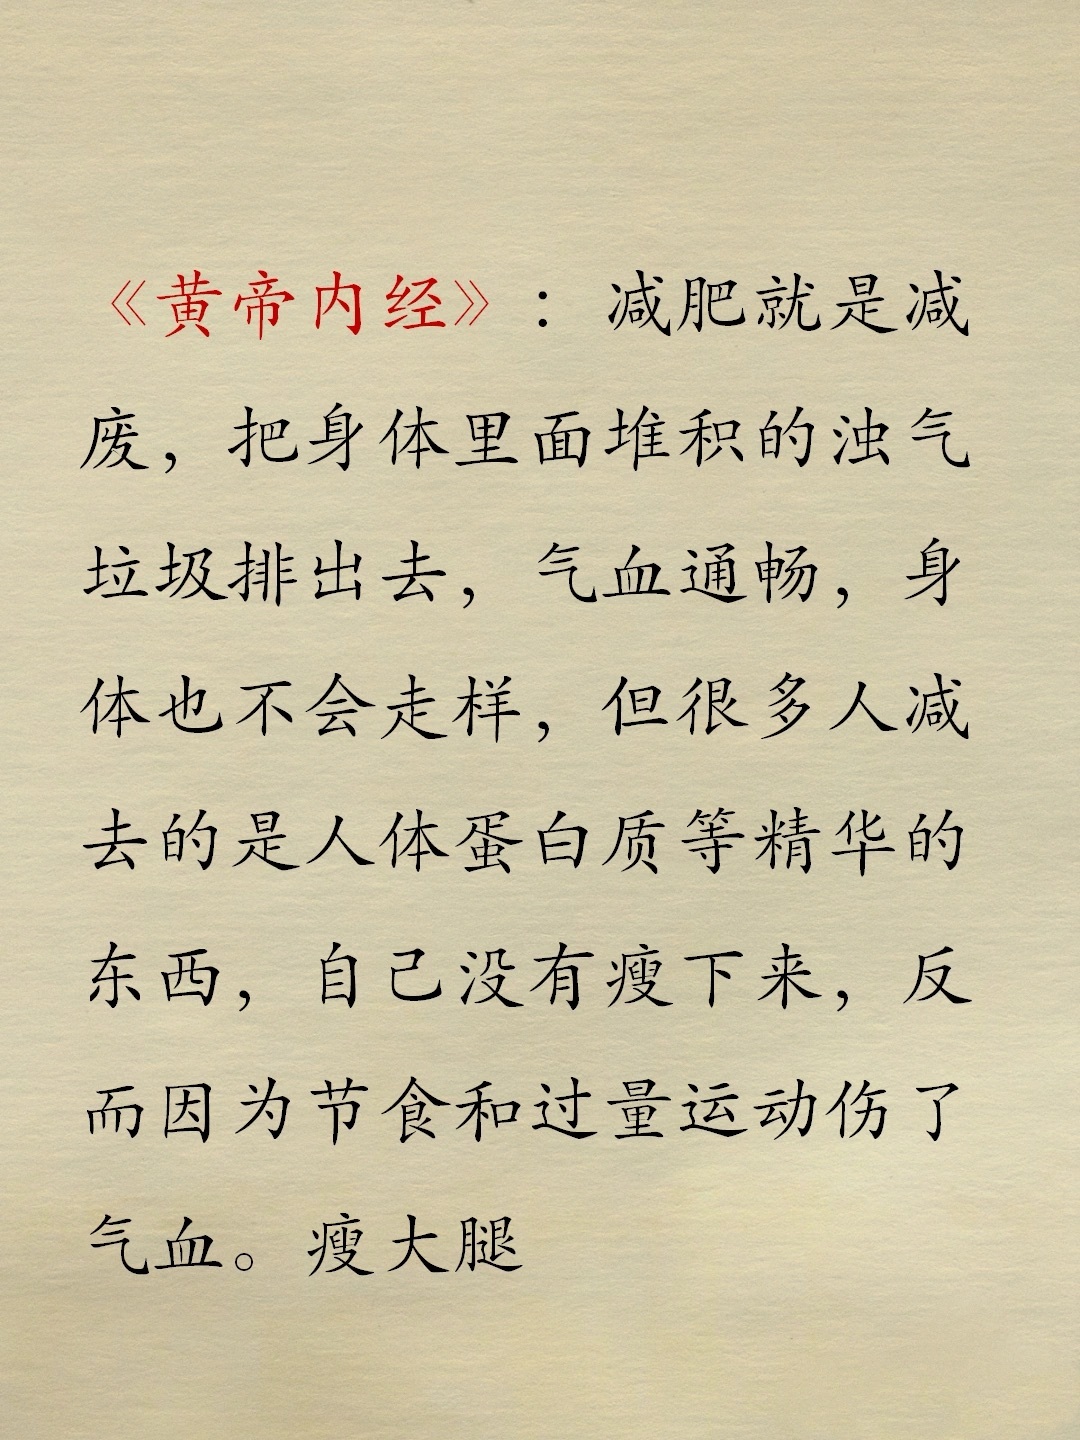 《黄帝内经》：减肥就是减
废，把身体里面堆积的浊气
垃圾排出去，气血通畅，身
体也不会走样，但很多人减
去的是人体蛋白质等精华的
东西，自己没有瘦下来，反
而因为节食和过量运动伤了
气血。瘦大腿